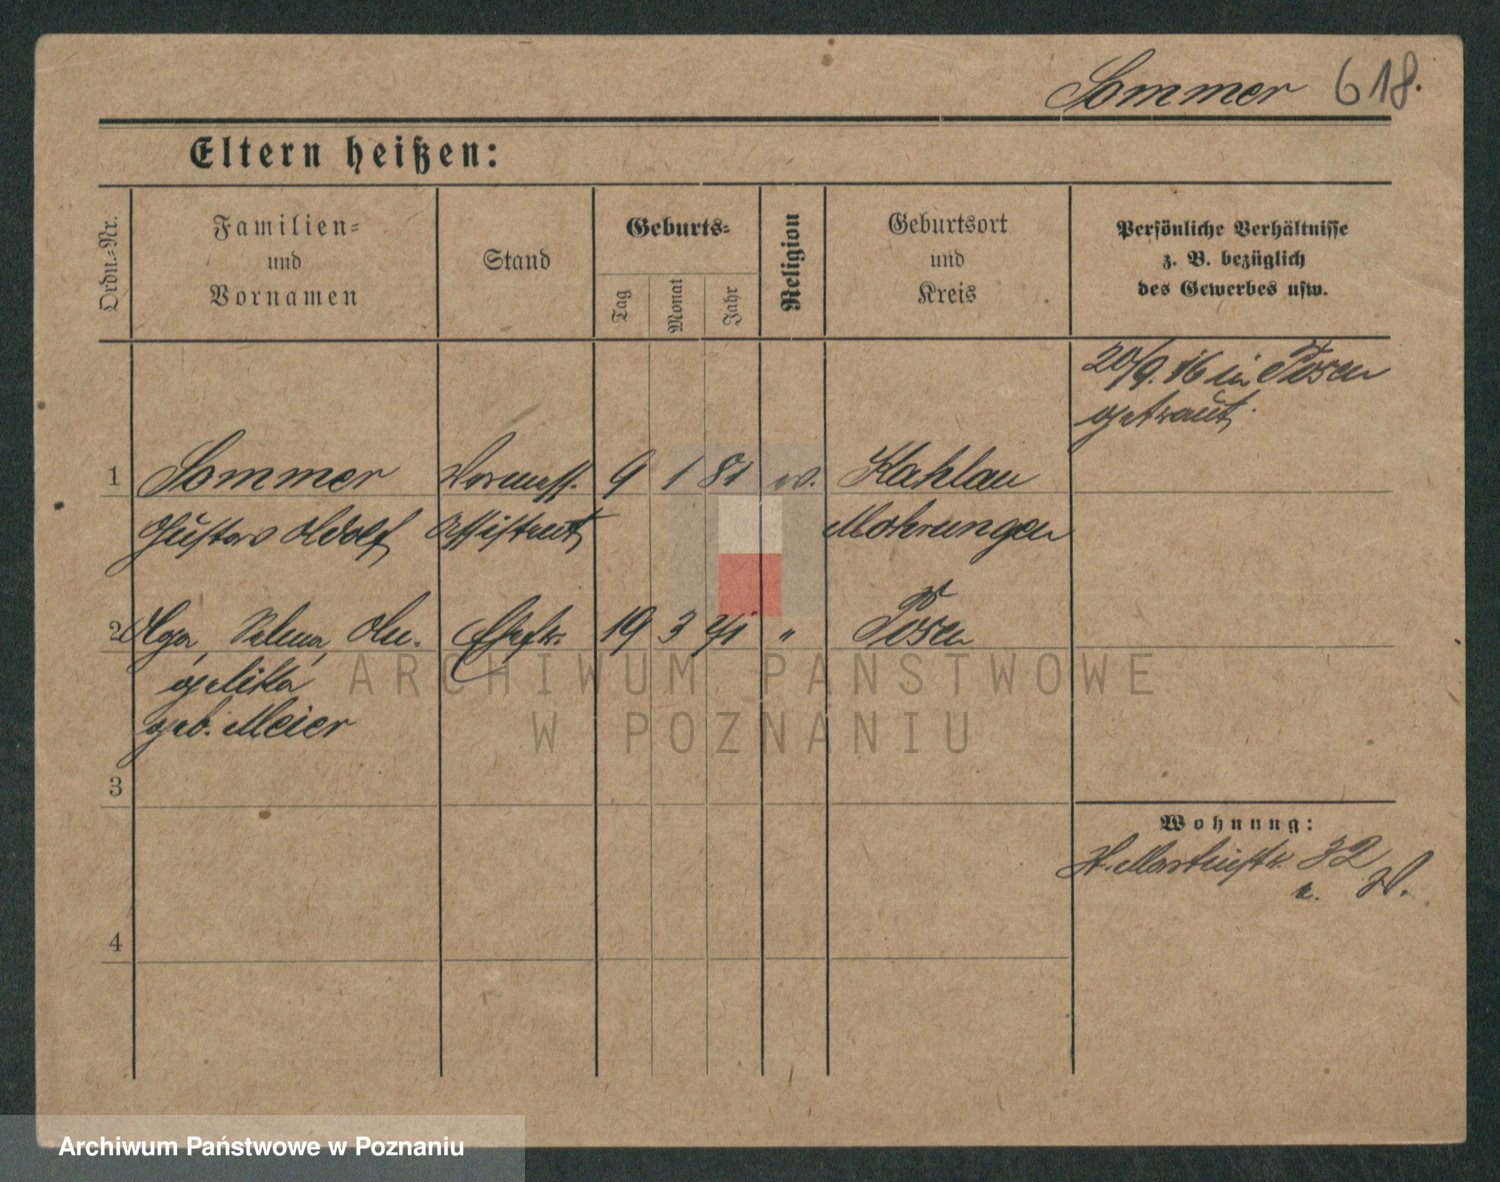 Sommer 618.
Eltern heißen:
Ordn.-Nr.
Familien-
und
Vornamen
Stand
Geburts-
Tag
Monat
Jahr
Religion
Geburtsort
und
Kreis
Persönliche Verhältnisse
z. B. bezüglich
des Gewerbes usw.
20/9. 16 in Posen
getraut.
1 Sommer 9 1 81 ev. Kahlau
Gustav Adolf Assistent Mohrungen
2 Olga, Selma, An- Ehefr. 19 3 91 " Posen
gelika
geb. Meier
3
Wohnung:
St. Martinstr. 32
4
ARCHIWUM PAŃSTWOWE
W POZNANIU
Archiwum Państwowe w Poznaniu